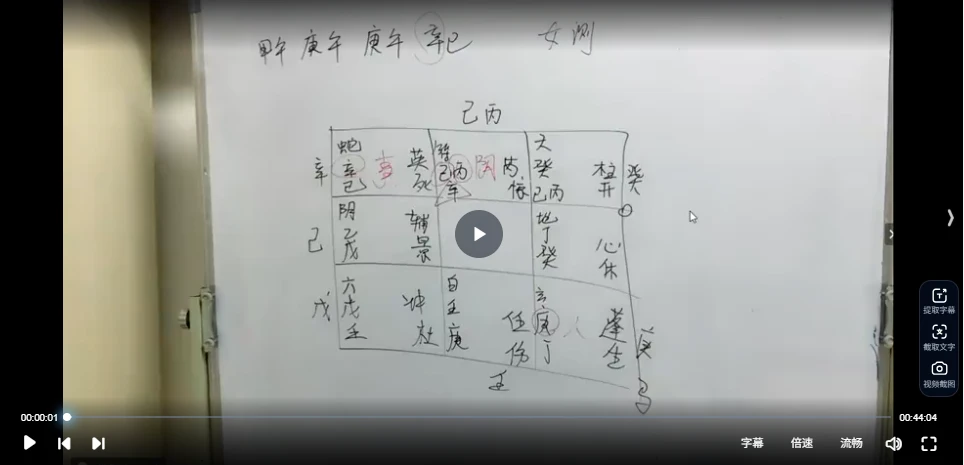 甲午 庚午 庚午 辛巳 女测
己丙
蛇 英 天 癸 柱
辛 辛 己 死 己丙 芮 癸 己丙 开 癸
阴 辅 地
己 乙 戊 景 丁 癸 心 休
六 冲 自 玄
戊 戊 壬 杜 壬 庚 任 伤 庚 丁 人 蓬 生
壬 马
提取字幕
截取文字
视频截图
00:00:01
00:44:04
字幕 倍速 流畅